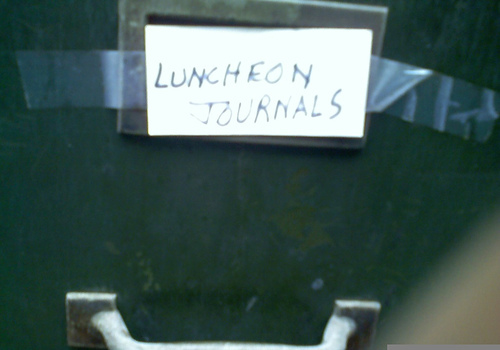 LUNCHEON
JOURNALS